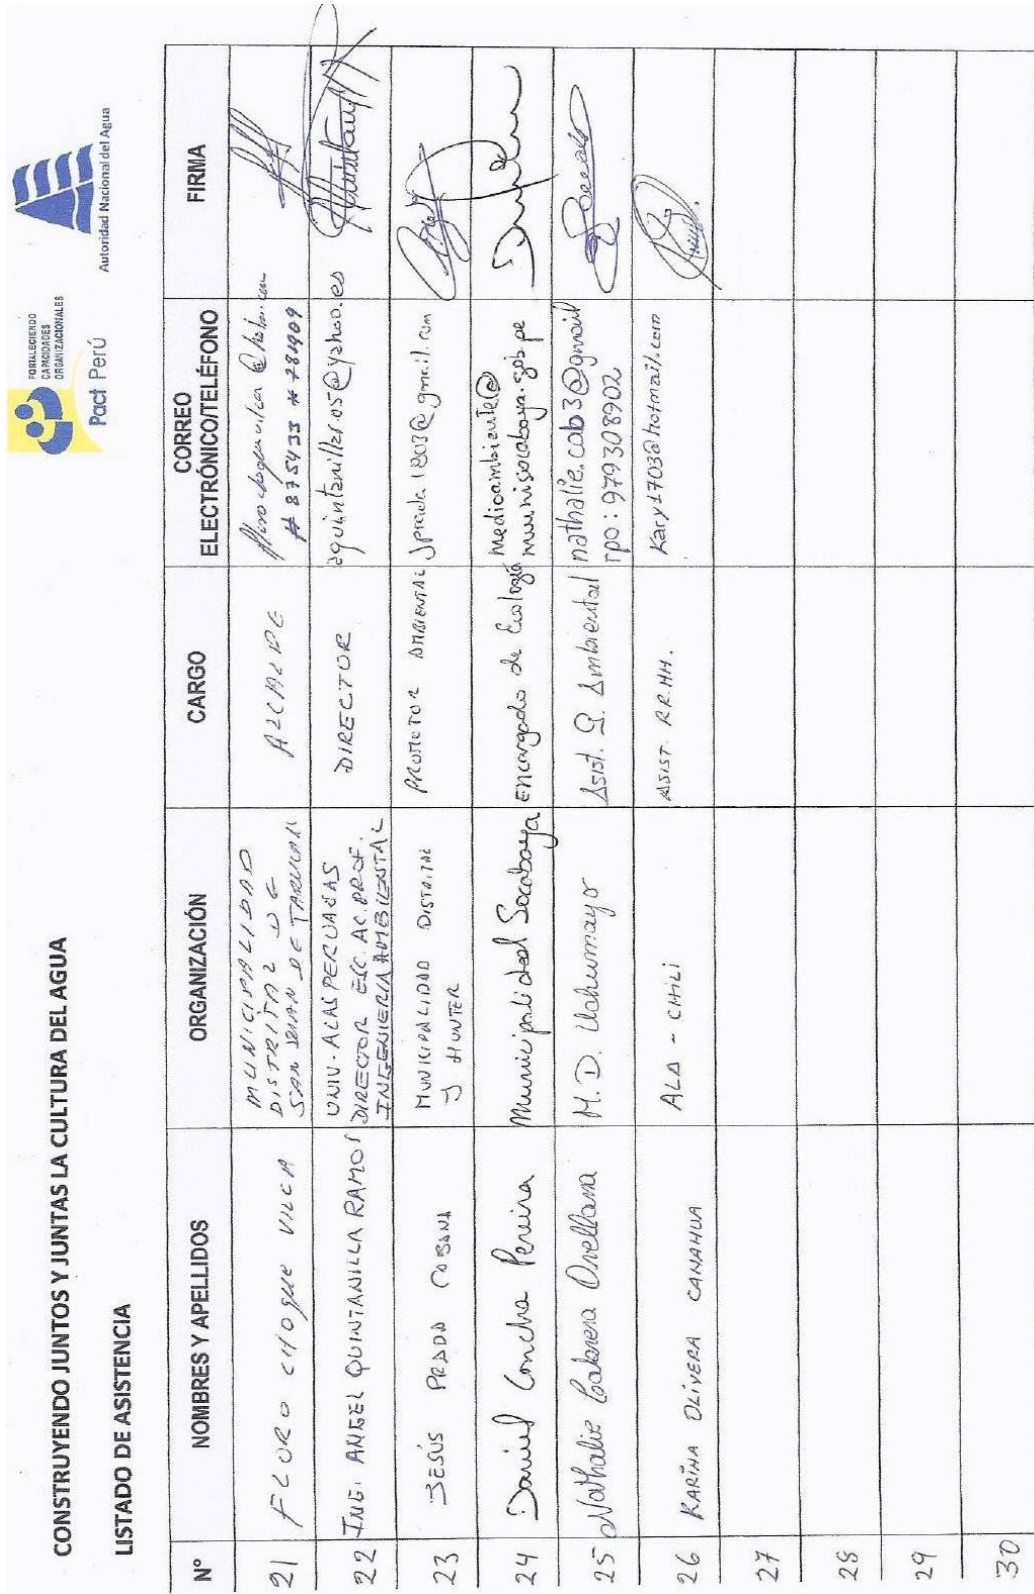 CONSTRUYENDO JUNTOS Y JUNTAS LA CULTURA DEL AGUA
FORTALECIENDO
CAPACIDADES
ORGANIZACIONALES
Pact Perú
Autoridad Nacional del Agua
LISTADO DE ASISTENCIA
N° NOMBRES Y APELLIDOS ORGANIZACIÓN CARGO CORREO ELECTRÓNICO/TELÉFONO FIRMA
21 FLORO CHOQUE VILCA
MUNICIPALIDAD
DISTRITAL DE
SAN JUAN DE TARUCANI
ALCALDE
22 ING. ANGEL QUINTANILLA RAMOS
UNIV. ALAS PERUANAS
DIRECTOR ESC. AC. PROF.
INGENIERIA AMBIENTAL
DIRECTOR
aquintanilla.05@yahoo.es
23 JESÚS PRADO
MUNICIPALIDAD DISTRITAL
J HUNTER
PROMOTOR AMBIENTAL
24 Daniel Concha Pereira
Municipalidad Socabaya
Encargado de Ecología
Medioambiente@
munisocabaya.gob.pe
25 Nathalie Cabrera Orellana
M.D. Uchumayo
Asist. G. Ambiental
nathalie.cab3@gmail
rpo: 979308902
26 KARINA OLIVERA CANAHUA
ALA - CHILI
ASIST. RR.HH.
Kary1703@hotmail.com
27
28
29
30